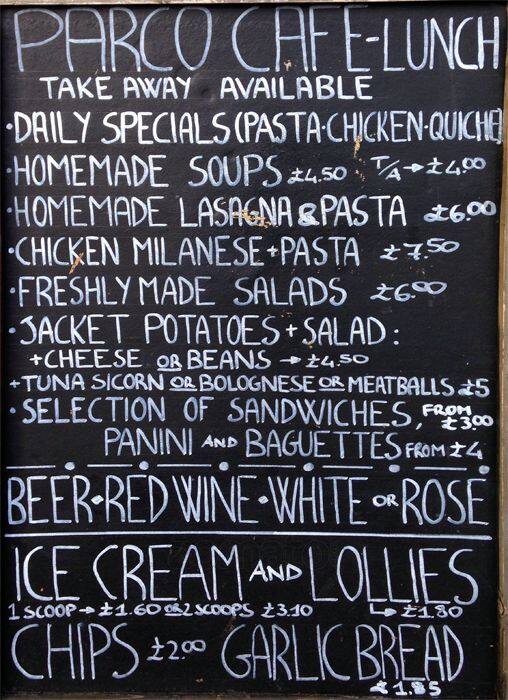 PARCO CAFE-LUNCH
TAKE AWAY AVAILABLE
·DAILY SPECIALS(PASTA·CHICKEN·QUICHE)
·HOMEMADE SOUPS £4.50 T/A→£4.00
·HOMEMADE LASAGNA & PASTA £6.00
·CHICKEN MILANESE+PASTA £7.50
·FRESHLY MADE SALADS £6.00
·JACKET POTATOES+SALAD:
+CHEESE OR BEANS →£4.50
+TUNA S/CORN OR BOLOGNESE OR MEATBALLS £5
·SELECTION OF SANDWICHES, FROM £3.00
PANINI AND BAGUETTES FROM £4
BEER·RED WINE·WHITE OR ROSE
ICE CREAM AND LOLLIES
1 SCOOP→£1.60 OR 2 SCOOPS £3.10 ↳£1.80
CHIPS £2.00 GARLIC BREAD
£1.85